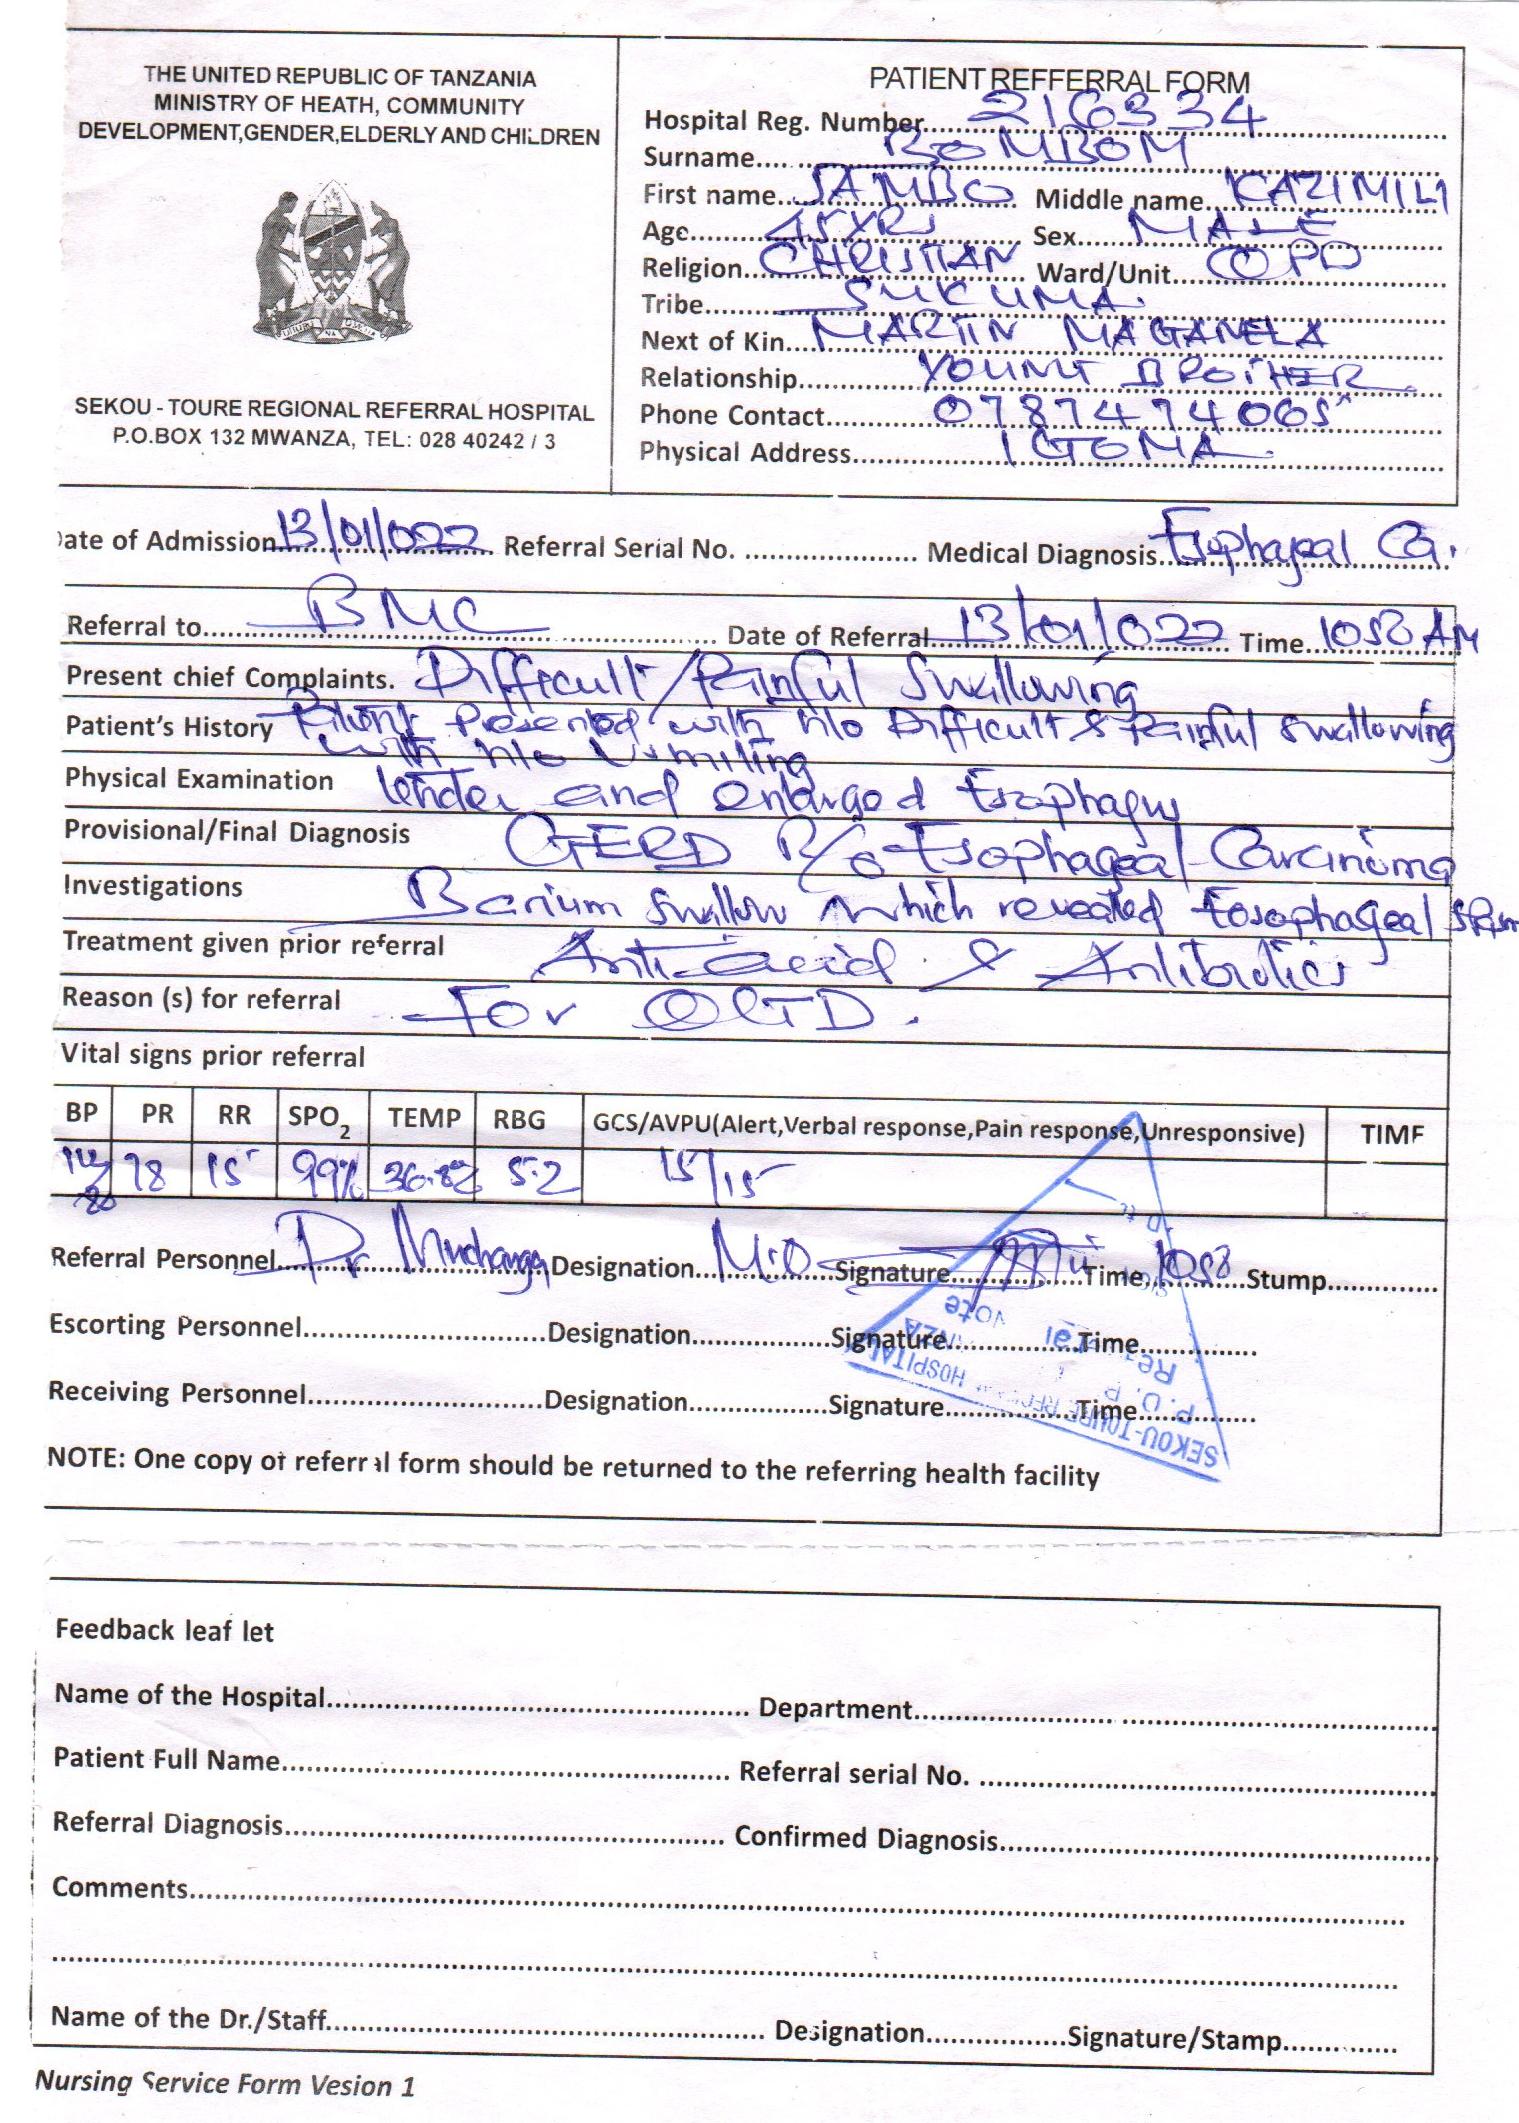 THE UNITED REPUBLIC OF TANZANIA
MINISTRY OF HEATH, COMMUNITY
DEVELOPMENT,GENDER,ELDERLY AND CHILDREN
SEKOU - TOURE REGIONAL REFERRAL HOSPITAL
P.O.BOX 132 MWANZA, TEL: 028 40242 / 3
PATIENT REFFERRAL FORM
Hospital Reg. Number 216334
Surname BOMBOM
First name SAMBO Middle name KAZIMILI
Age 45YRS Sex MALE
Religion CHRISTIAN Ward/Unit OPD
Tribe SUKUMA
Next of Kin MARTIN MAGANELA
Relationship YOUNG BROTHER
Phone Contact 0787474065
Physical Address IGOMA
Date of Admission 13/01/022 Referral Serial No. Medical Diagnosis Esophageal Ca.
Referral to BMC Date of Referral 13/01/022 Time 1058 AM
Present chief Complaints. Difficult/Painful Swallowing
Patient's History Patient Presented with h/o Difficult & Painful swallowing
with h/o Vomiting
Physical Examination tender and enlarged Esophagus
Provisional/Final Diagnosis GERD R/o Esophageal Carcinoma
Investigations Barium swallow which revealed Eosophageal
Treatment given prior referral Anti-acid & Antibiotics
Reason (s) for referral For OGTD.
Vital signs prior referral
BP PR RR SPO2 TEMP RBG GCS/AVPU(Alert,Verbal response,Pain response,Unresponsive) TIME
80 78 15 99% 36.8°C 5.2 15/15
Referral Personnel Dr Designation M.O Signature Time 1058 Stump
Escorting Personnel Designation Signature Time
Receiving Personnel Designation Signature Time
SEKOU-TOURE HOSPITAL
NOTE: One copy of referral form should be returned to the referring health facility
Feedback leaf let
Name of the Hospital Department
Patient Full Name Referral serial No.
Referral Diagnosis Confirmed Diagnosis
Comments
Name of the Dr./Staff Designation Signature/Stamp
Nursing Service Form Vesion 1